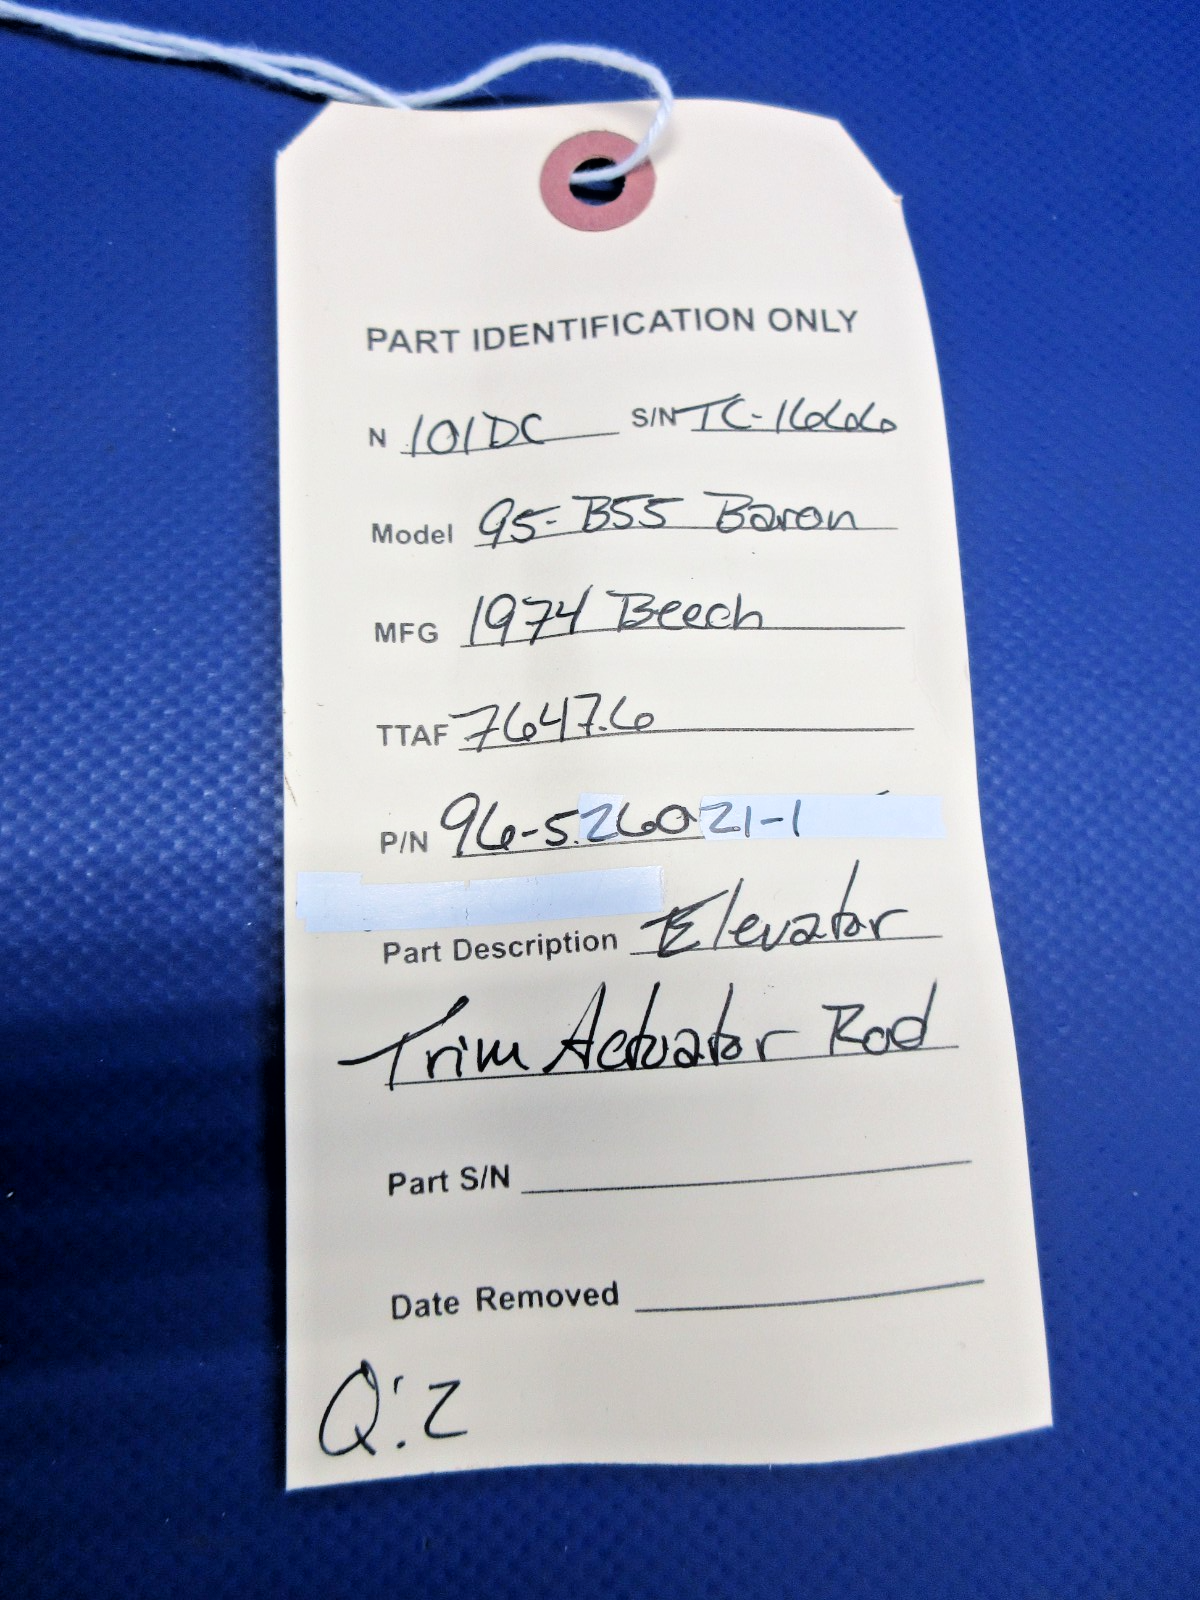 PART IDENTIFICATION ONLY
N 101DC S/N TC-1666
Model 95-B55 Baron
MFG 1974 Beech
TTAF 7647.6
P/N 96-526021-1
Part Description Elevator
Trim Actuator Rod
Part S/N
Date Removed
Q:2